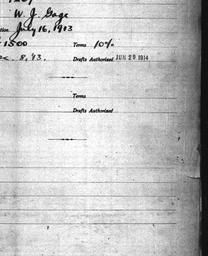 W. J. Gage
July 16, 1913
1500 Terms 10%
8, 93. Drafts Authorized JUN 29 1914
Terms
Drafts Authorized